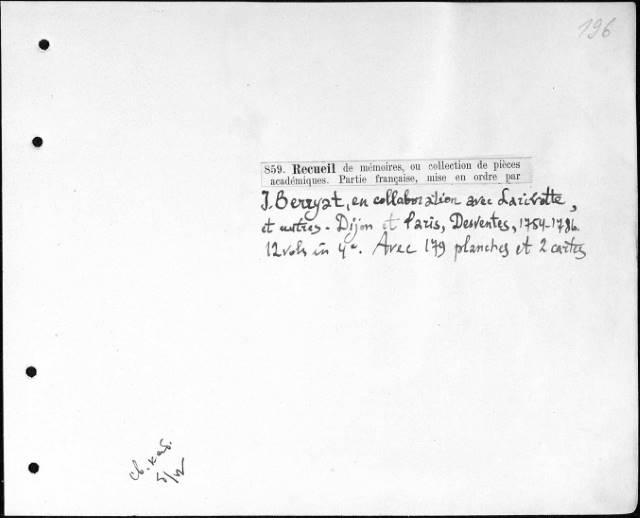 196
859. Recueil de mémoires, ou collection de pièces
académiques. Partie française, mise en ordre par
J. Berryat, en collaboration avec Larivotte,
et autres. Dijon et Paris, Desventes, 1754-1786.
12 vols in 4º. Avec 179 planches et 2 cartes